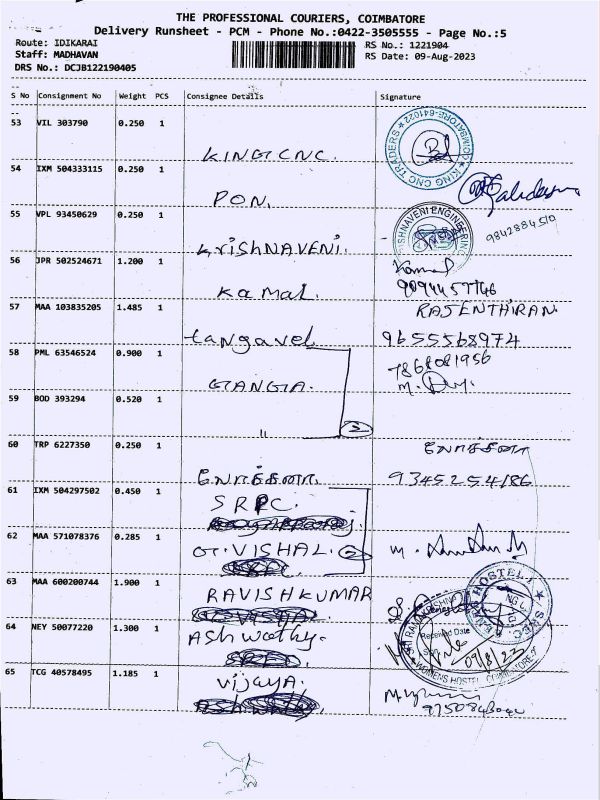 THE PROFESSIONAL COURIERS, COIMBATORE
Delivery Runsheet - PCM - Phone No.:0422-3505555 - Page No.:5
Route: IDIKARAI
RS No.: 1221904
Staff: MADHAVAN
RS Date: 09-Aug-2023
DRS No.: DCJB122190405
S No Consignment No Weight PCS Consignee Details Signature
53 VIL 303790 0.250 1
KING CNC.
KING CNC TRADERS COIMBATORE-641022
54 IXM 504333115 0.250 1
PON.
55 VPL 93450629 0.250 1
KRISHNAVENI.
KRISHNAVENI ENGINEERING
9842884510
56 JPR 502524671 1.200 1
Kamal.
Kamal
9094457746
57 MAA 103835205 1.485 1
tangavel
RAJENTHIRAN.
9655568974
58 PML 63546524 0.900 1
GANGA.
7868081956
59 BOD 393294 0.520 1
"
2
60 TRP 6227350 0.250 1
9345254186
61 IXM 504297502 0.450 1
SREC.
62 MAA 571078376 0.285 1
G. VISHAL. 2
63 MAA 600200744 1.900 1
RAVISHKUMAR
HOSTEL-1 SREC
64 NEY 50077220 1.300 1
Ashwathy.
SRI RAMAKRISHNA
Received Date
09/8/23
WOMENS HOSTEL COIMBATORE
65 TCG 40578495 1.185 1
Vijaya.